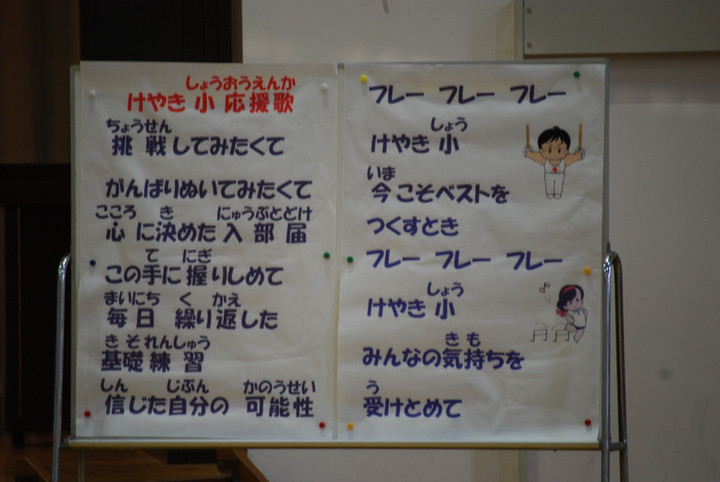 しょうおうえんか
けやき 小 応援歌
ちょうせん
挑 戦してみたくて
がんばりぬいてみたくて
こころ き にゅうぶとどけ
心 に決めた 入 部 届
て にぎ
この手に 握りしめて
まいにち く かえ
毎 日 繰り返した
き そ れんしゅう
基礎 練 習
しん じぶん かのうせい
信じた自分の 可能性
フレー フレー フレー
しょう
けやき 小
いま
今 こそベストを
つくすとき
フレー フレー フレー
しょう
けやき 小
き も
みんなの気持ちを
う
受けとめて